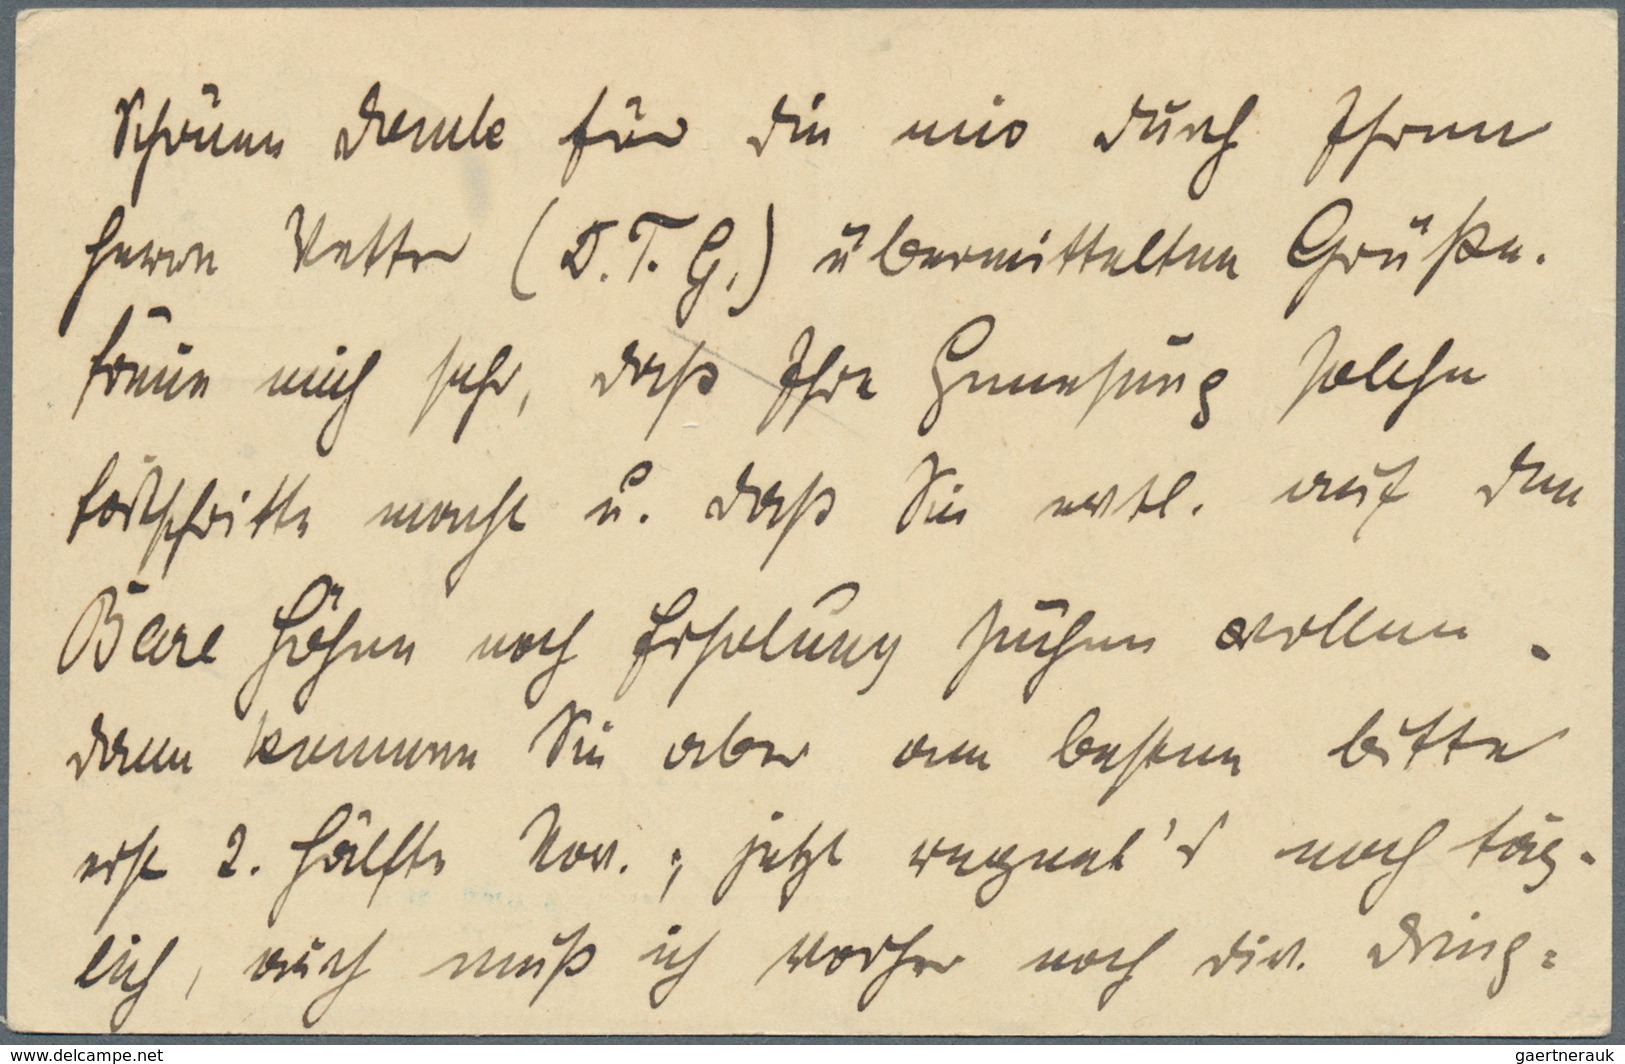 Schönen Dank für die mir durch Ihren
Herrn Vetter (D.T.G.) übermittelten Grüße.
Freue mich sehr, daß Ihre Genesung solche
Fortschritte macht u. daß Sie evtl. auf den
Bare Höhen noch Erholung suchen wollen.
dann kommen Sie aber am besten bitte
erst 2. Hälfte Nov.; jetzt regnet's noch täg-
lich, auch muß ich vorher noch div. dring-
www.delcampe.net
gaertnerauk